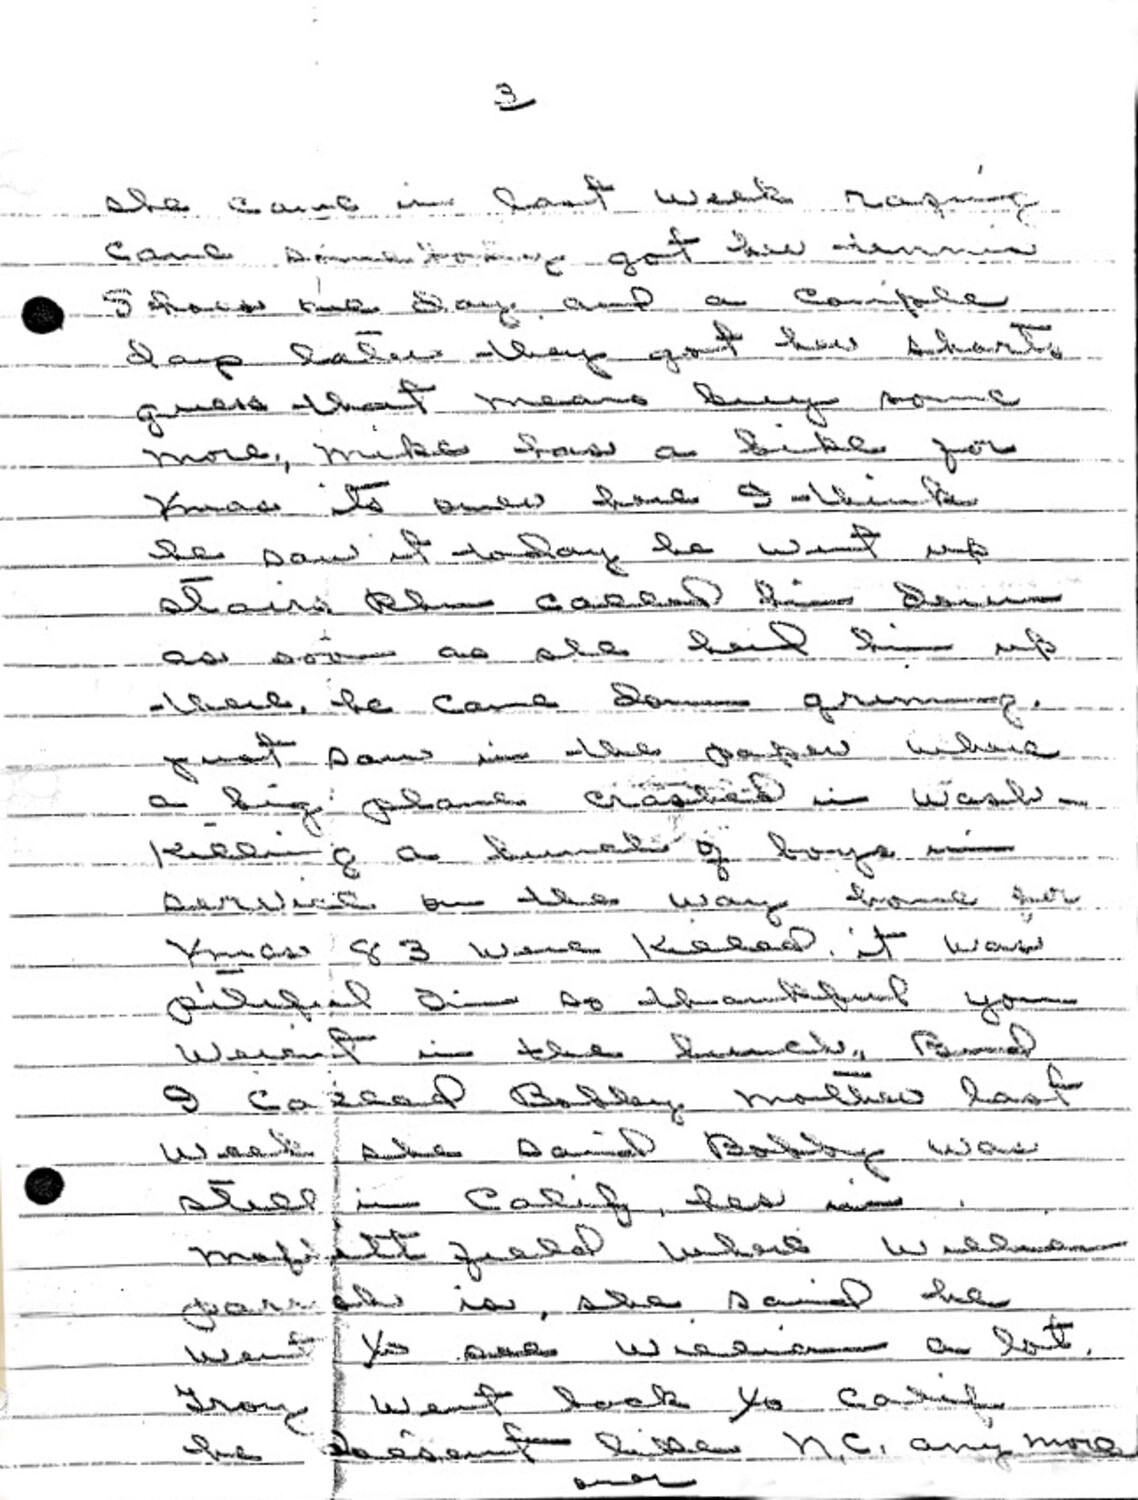 3
she came in last week raping
cane somebody got her tennis
Shoes one day and a couple
days later they got her shorts
guess that means buy some
more, Mike has a bike for
Xmas its over here I think
he saw it today he went up
stairs called him down
as soon as she heard him up
there, he came down grinning.
just saw in the paper where
a big plane crashed in Wash-
killing a bunch of boys in
service on the way home for
Xmas 83 were killed, it was
pitiful Im so thankful you
weren't in the bunch, Bud
I called Bobby mother last
week she said Bobby was
still in Calif, hes in
Moffett field where William
is, she said he
went to see William a lot.
Troy went back to Calif
he doesent like N.C. any more
over